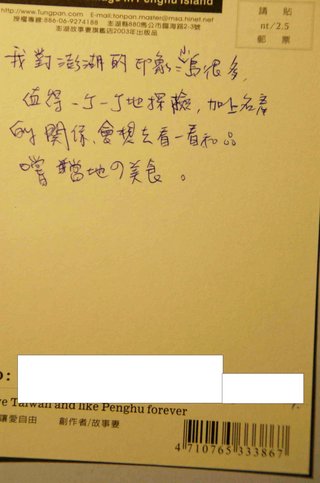 age in Penghu Island
http://www.Tungpan.com E-mail:tonpan.master@msa.hinet.net
授權專線:886-06-9274188 澎湖縣880馬公市鎮海路2-3號
澎湖故事妻旗艦店2003年出版品
請 貼
nt/2.5
郵 票
我對澎湖的印象:鳥很多,
值得一ㄅ一ㄅ地探險,加上名產
的關係,會想去看一看和品
嚐當地の美食。
o:
ve Taiwan and like Penghu forever
讓愛自由 創作者/故事妻
4 710765 333867